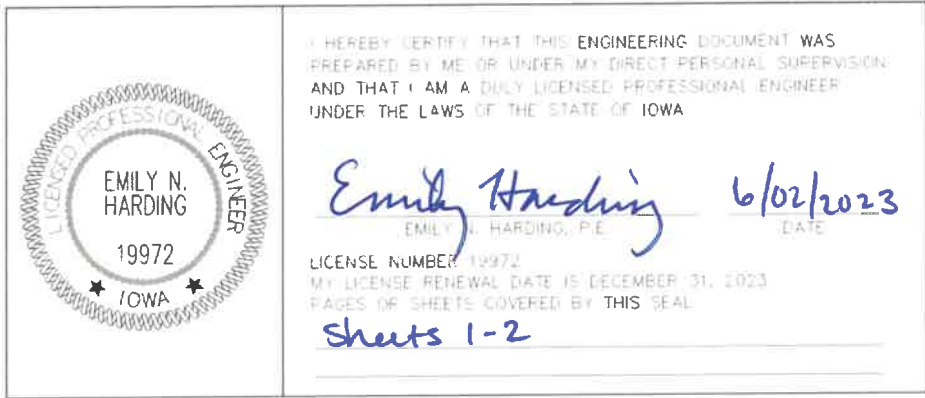 LICENSED PROFESSIONAL ENGINEER
EMILY N.
HARDING
19972
★ IOWA ★
I HEREBY CERTIFY THAT THIS ENGINEERING DOCUMENT WAS
PREPARED BY ME OR UNDER MY DIRECT PERSONAL SUPERVISION
AND THAT I AM A DULY LICENSED PROFESSIONAL ENGINEER
UNDER THE LAWS OF THE STATE OF IOWA
Emily Harding 6/02/2023
EMILY N. HARDING, P.E. DATE
LICENSE NUMBER 19972
MY LICENSE RENEWAL DATE IS DECEMBER 31, 2023
PAGES OR SHEETS COVERED BY THIS SEAL
Sheets 1-2